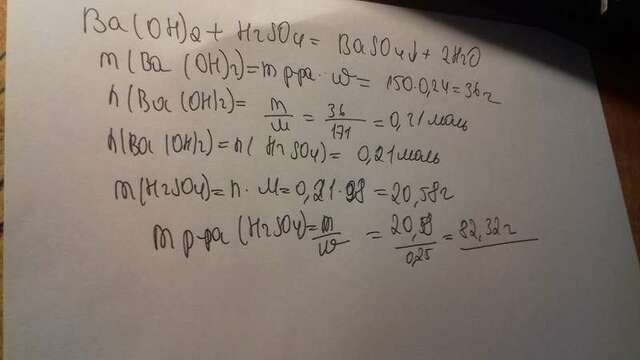 Ba(OH)2 + H2SO4 = BaSO4↓ + 2H2O
m(Ba(OH)2) = m р-ра · w = 150·0,24 = 36г
n(Ba(OH)2) = m/M = 36/171 = 0,21 моль
n(Ba(OH)2) = n(H2SO4) = 0,21 моль
m(H2SO4) = n · M = 0,21·98 = 20,58г
m р-ра (H2SO4) = m/w = 20,58/0,25 = 82,32г